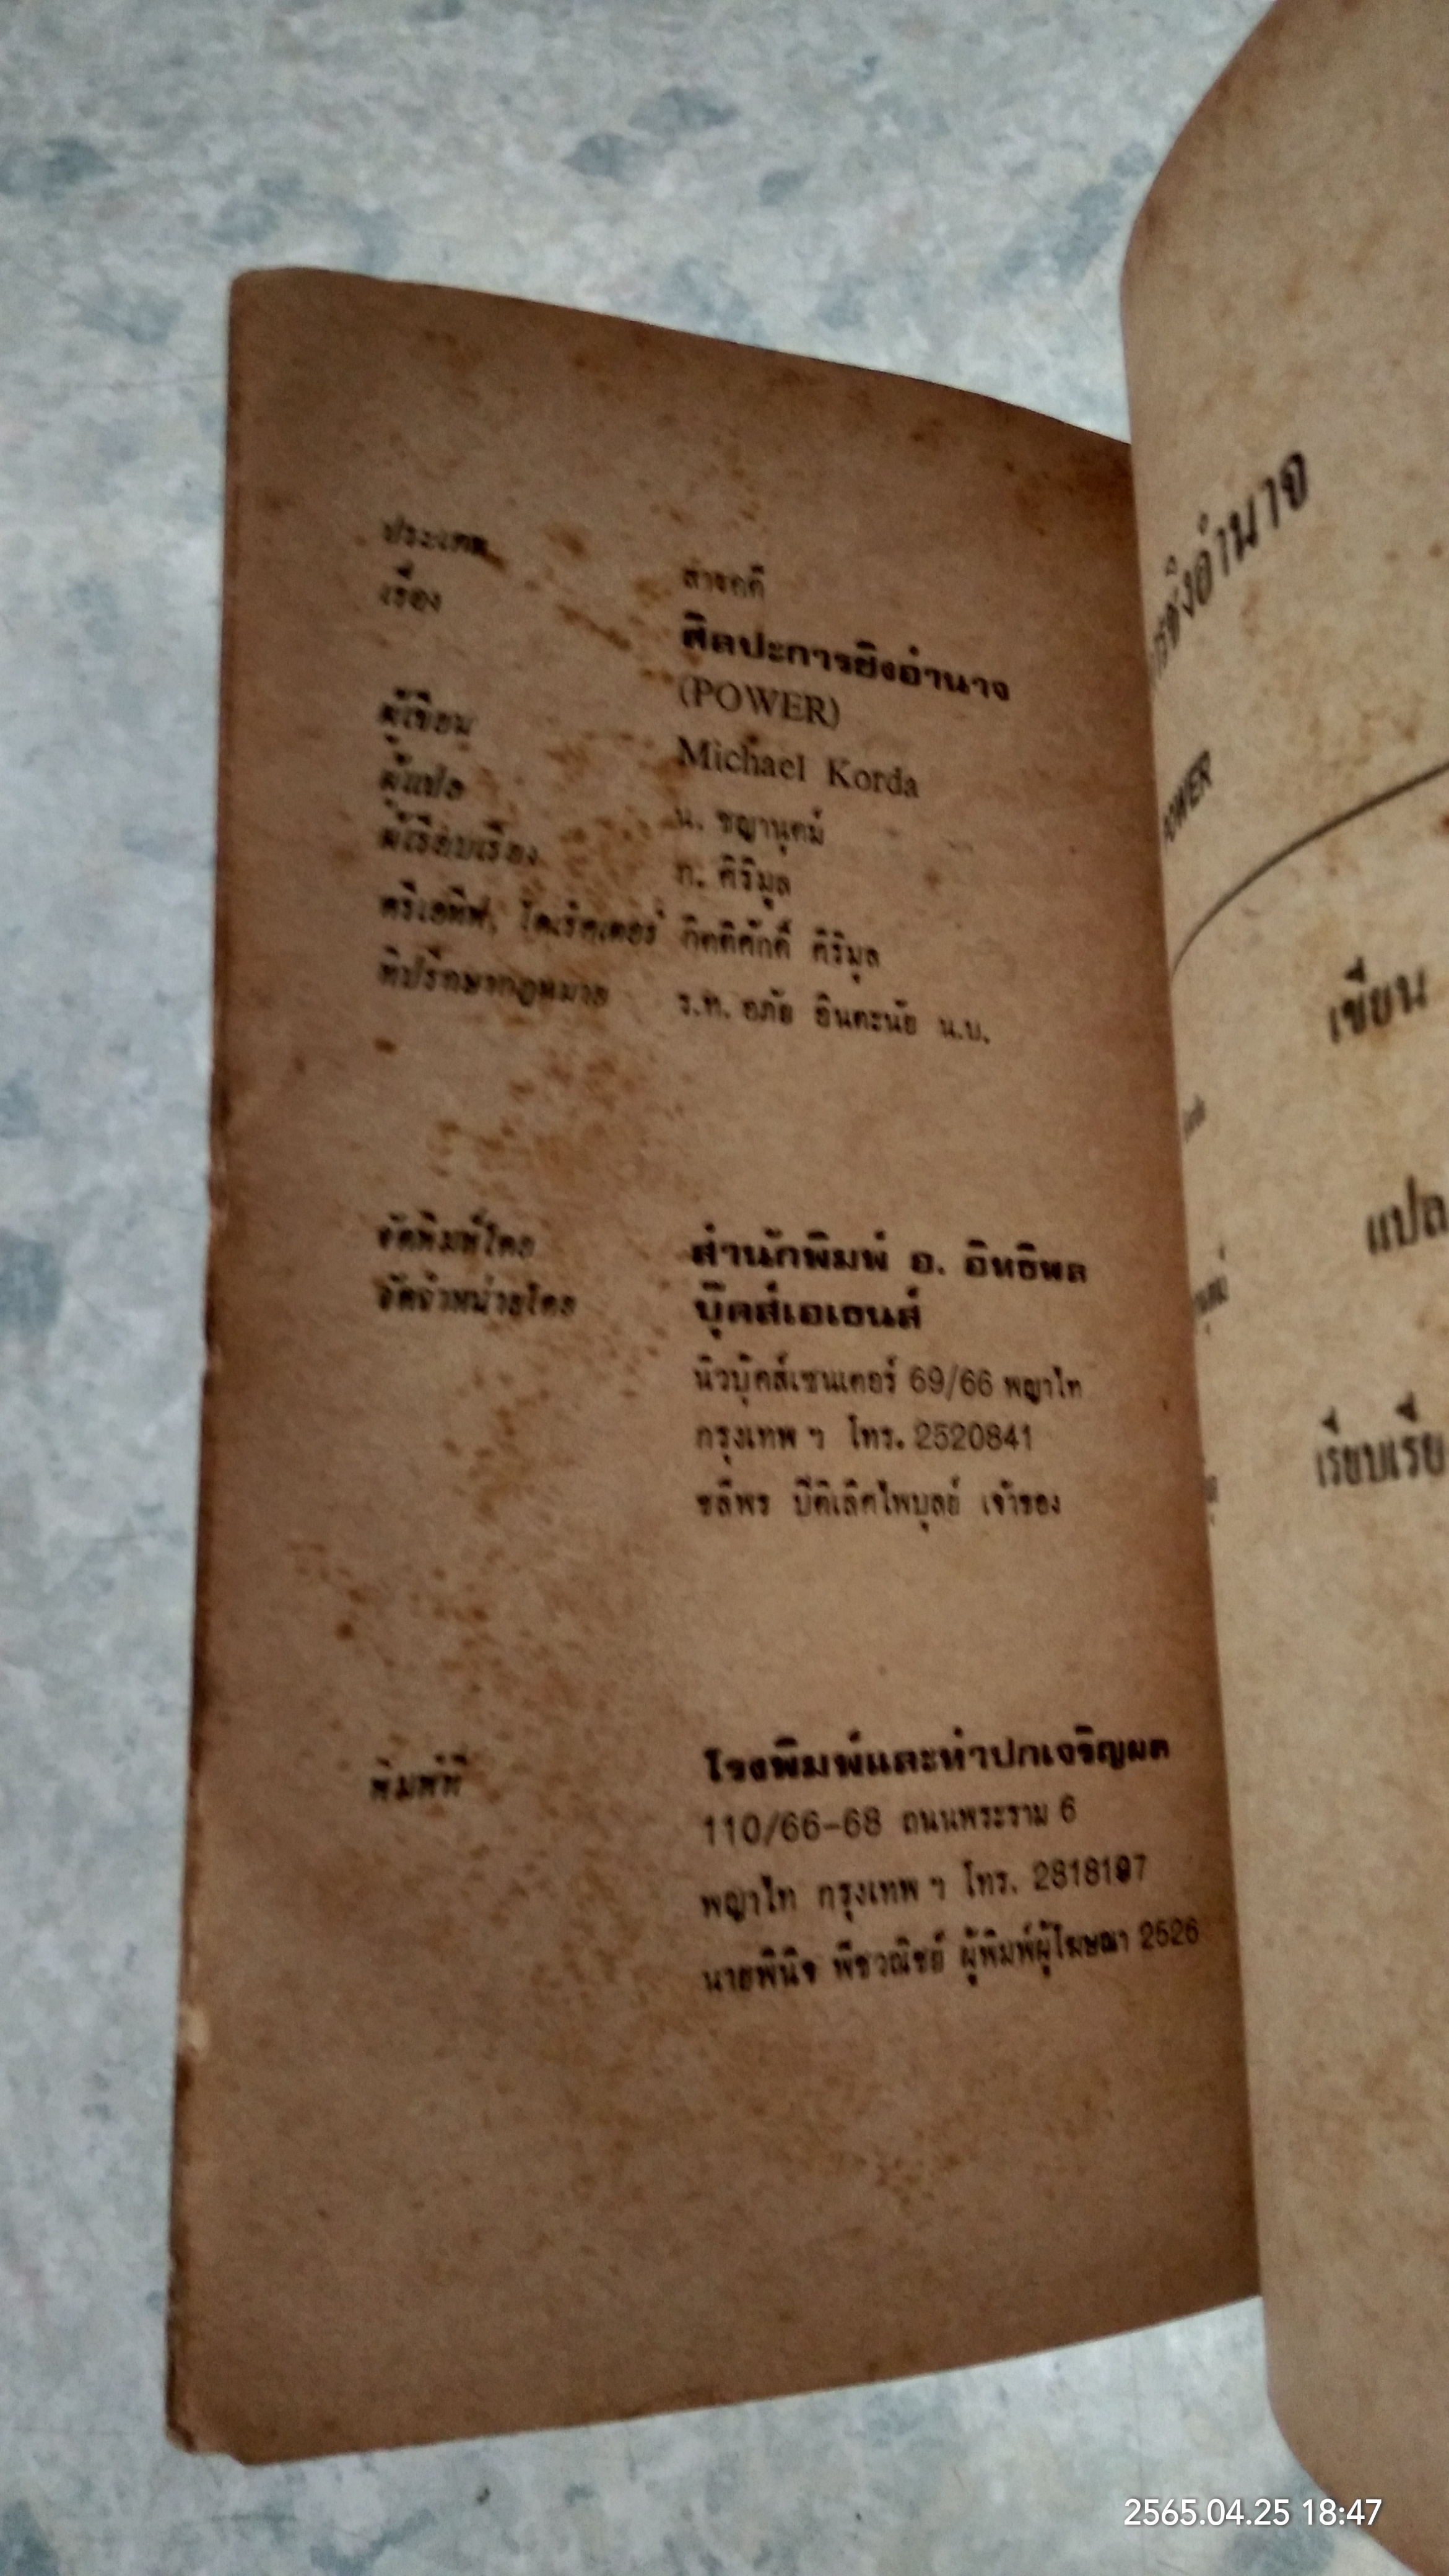 ประเภท สารคดี
เรื่อง ศิลปะการชิงอำนาจ
(POWER)
ผู้เขียน Michael Korda
ผู้แปล น. ชญานุตม์
ผู้เรียบเรียง ก. คิริมูล
ครีเอทีฟ, ไดเร็คเตอร์ กิตติศักดิ์ คิริมูล
ที่ปรึกษากฎหมาย ร.ท. อภัย อินตะนัย น.บ.
จัดพิมพ์โดย สำนักพิมพ์ อ. อิทธิพล
จัดจำหน่ายโดย บุ๊คส์เอเยนส์
นิวบุ๊คส์เซนเตอร์ 69/66 พญาไท
กรุงเทพ ฯ โทร. 2520841
ชลีพร ปิติเลิศไพบูลย์ เจ้าของ
พิมพ์ที่ โรงพิมพ์และทำปกเจริญผล
110/66-68 ถนนพระราม 6
พญาไท กรุงเทพ ฯ โทร. 2818197
นายพินิจ พืชวณิชย์ ผู้พิมพ์ผู้โฆษณา 2526
ชิงอำนาจ
POWER
เขียน
แปล
2565.04.25 18:47